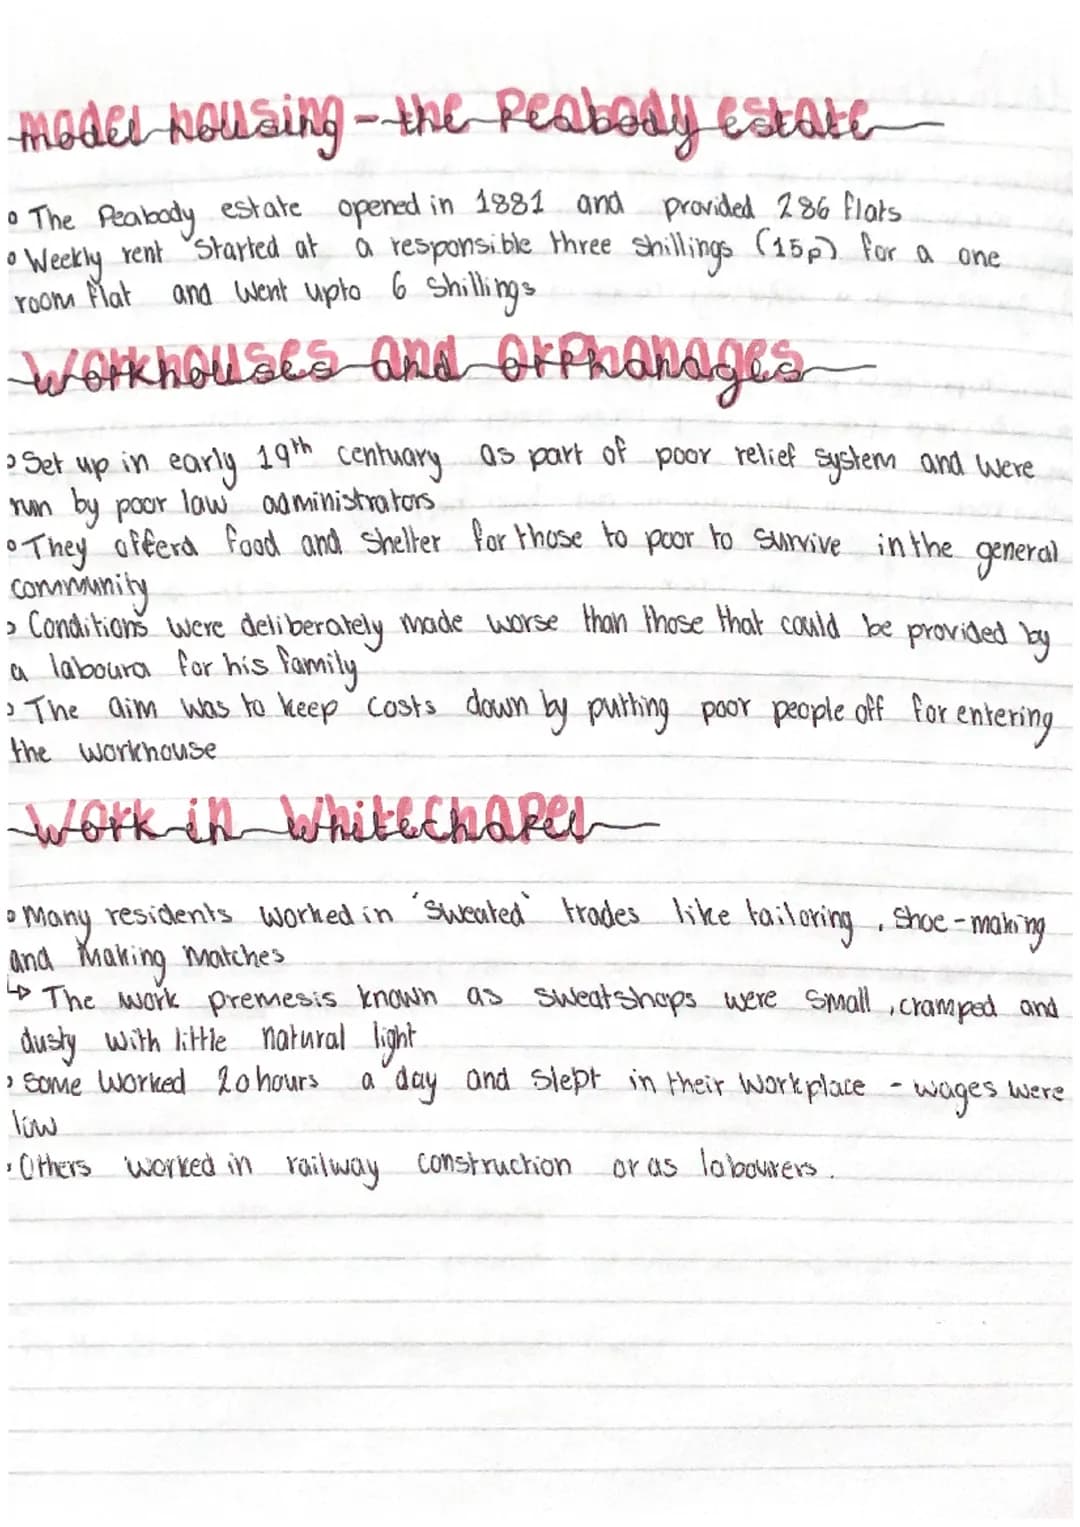 model housing - the Peabody estate
The Peabody estate opened in 1881 and provided 286 flats
Weekly rent started at a responsible three shillings (15p) for a one
room flat and went upto 6 shillings
Workhouses and orphanages
Set up in early 19th centuary as part of poor relief system and were
run by poor law administrators
They offerd food and shelter for those to poor to survive in the general
community
Conditions were deliberately made worse than those that could be provided by
a laboura for his family
The aim was to keep costs down by putting poor people off for entering
the workhouse
Work in Whitechapel
Many residents worked in 'sweated' trades like tailoring, shoe-making
and making matches
↳ The work premesis known as sweatshops were small, cramped and
dusty with little natural light
Some worked 20 hours a day and slept in their workplace - wages were
low
Others worked in railway construction or as labourers.